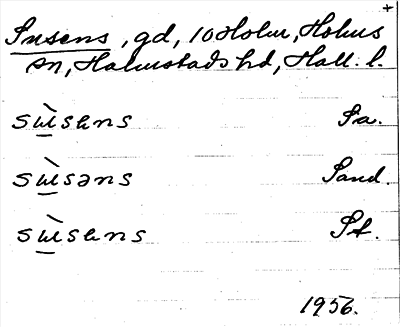 +
Susens, gd, 10 Holm, Holms
sn, Halmstads hd, Hall. l.
sɯ̀sens Pa.
sɯ̀səns Sand.
sɯ̀sens St.
1956.